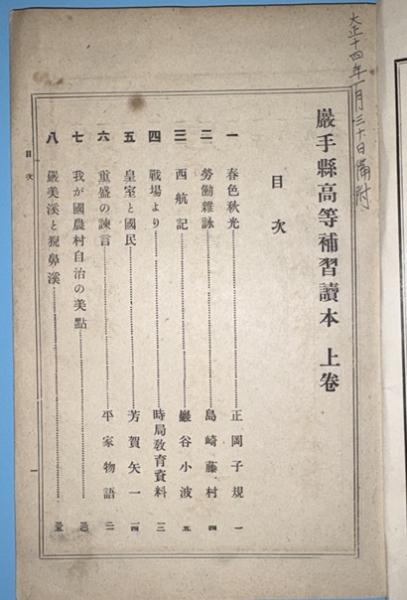 大正十四年一月三十日備附
巖手縣高等補習讀本 上卷
目次
一 春色秋光 正岡子規 一
二 勞働雜詠 島崎藤村 四
三 西航記 巖谷小波 五
四 戰場より 時局敎育資料 三
五 皇室と國民 芳賀矢一 一四
六 重盛の諫言 平家物語
七 我が國農村自治の美點
八 嚴美溪と猊鼻溪
目次
一